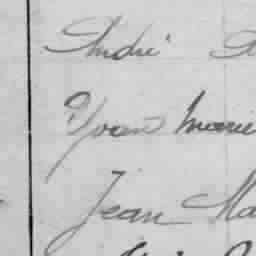 André
Yvon Marie
Jean Ma